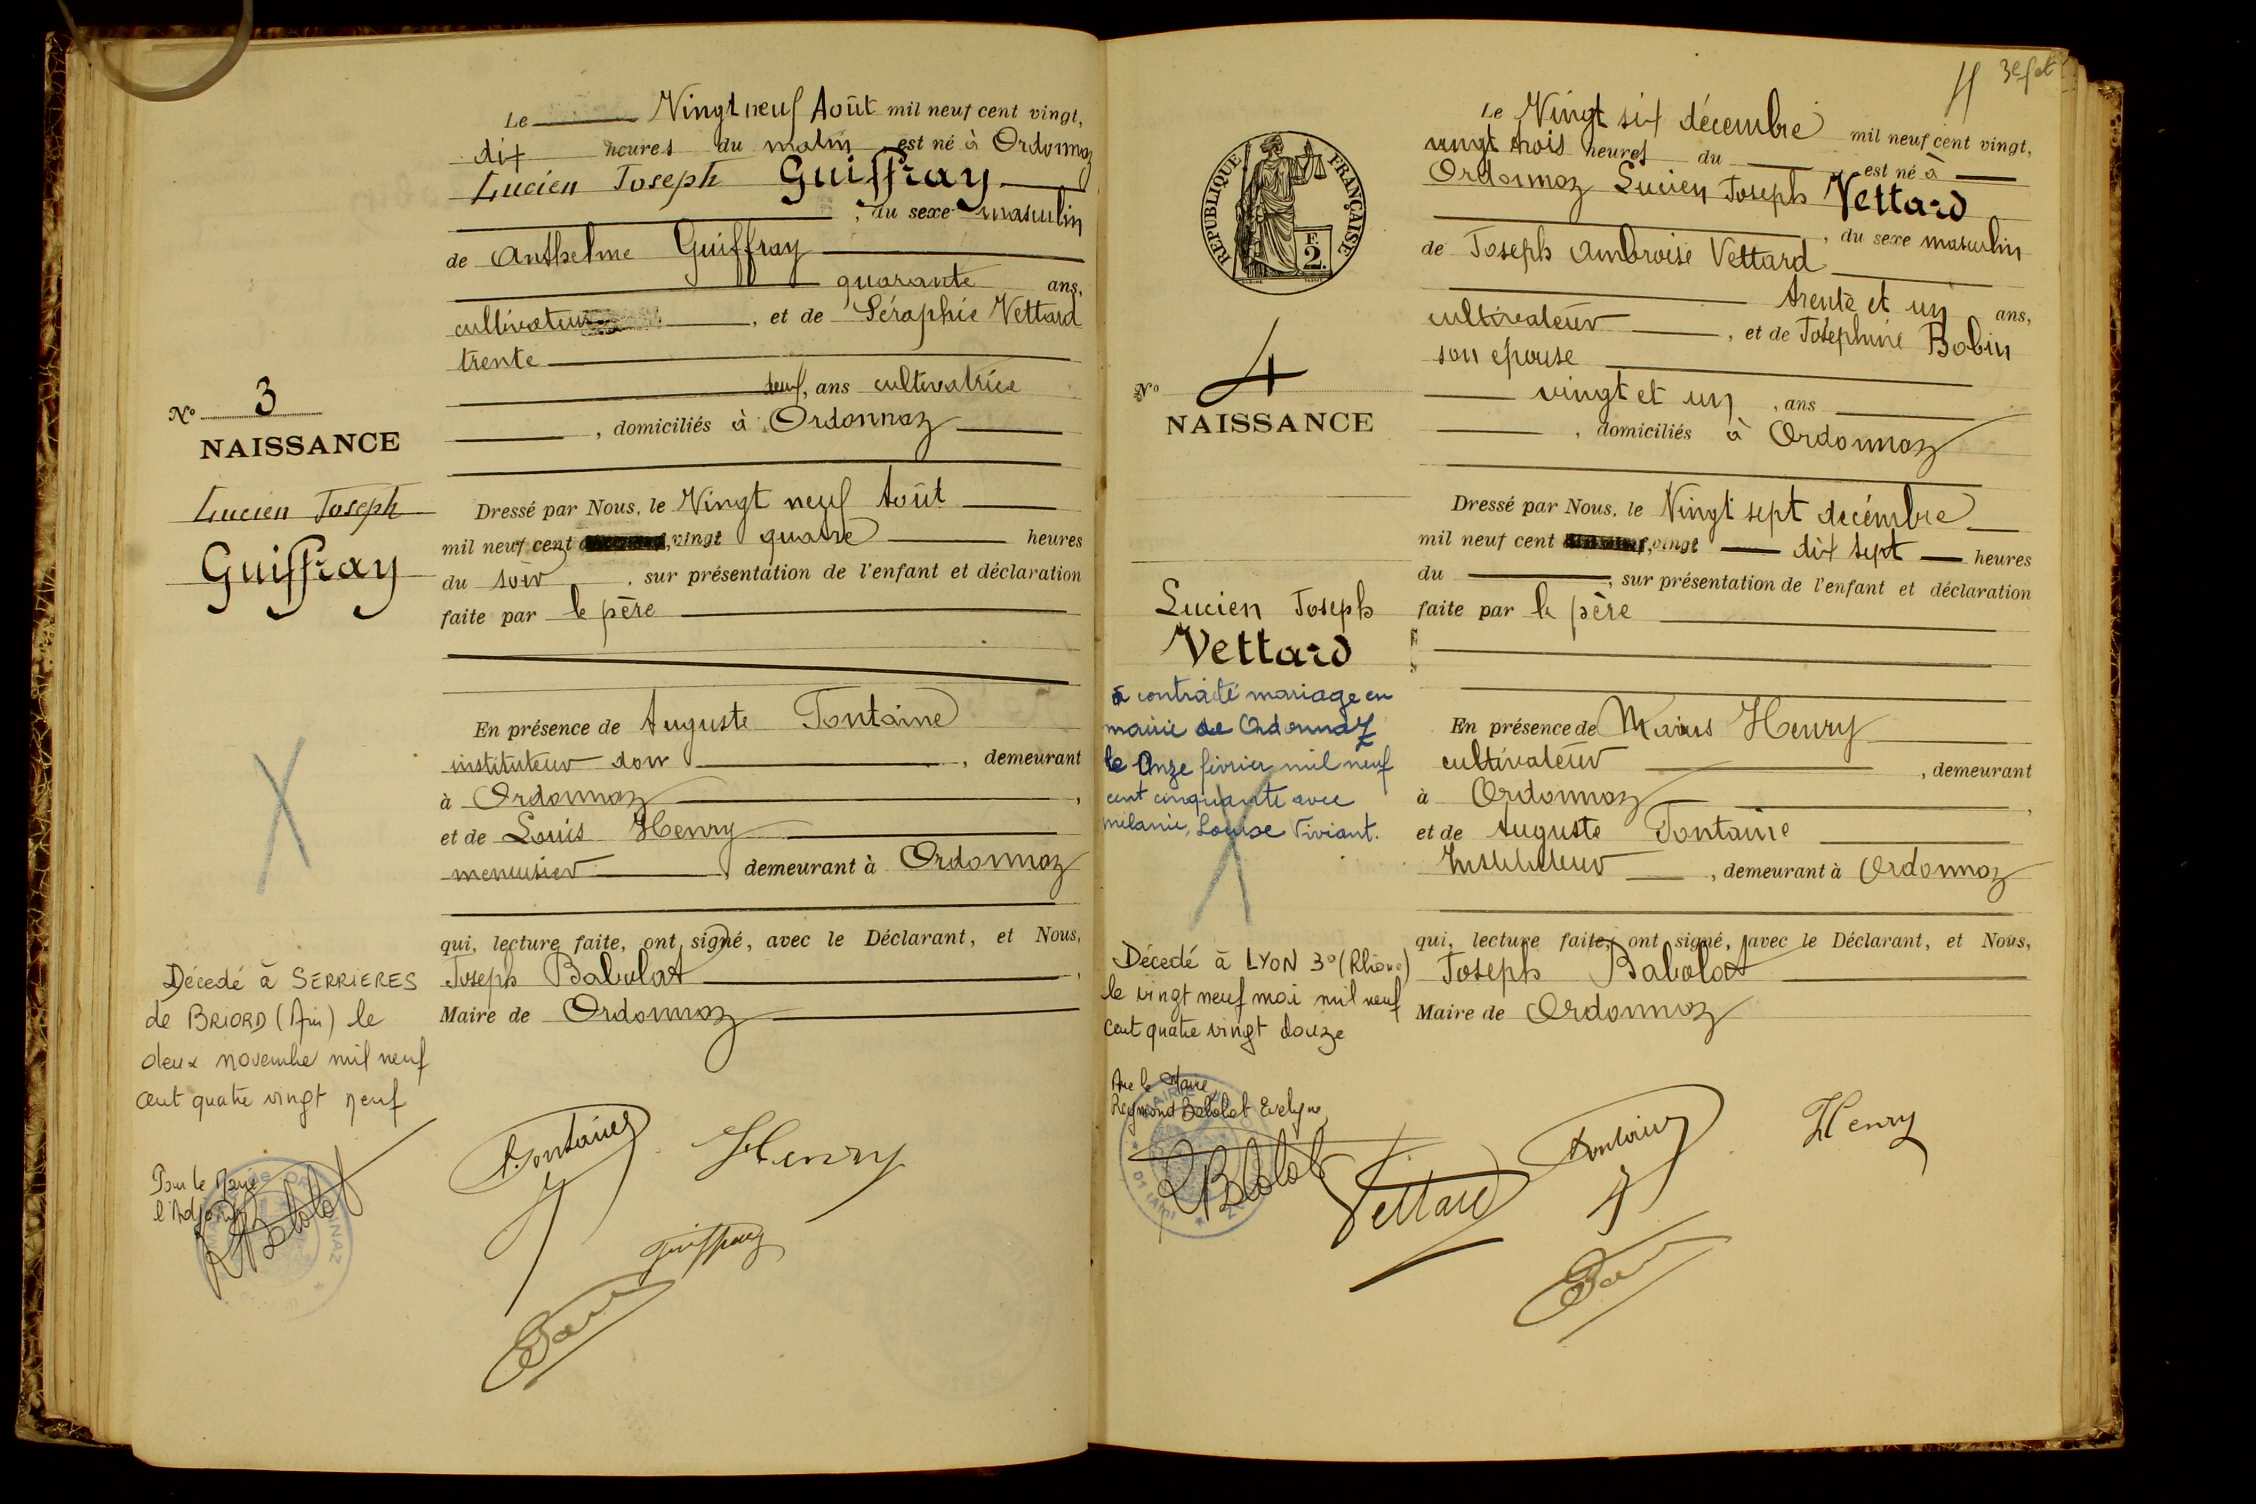 Le Vingt neuf Août mil neuf cent vingt,
dix heures du matin est né à Ordonnaz
Lucien Joseph Guiffray
, du sexe masculin
de Anthelme Guiffray
quarante ans,
cultivateur , et de Séraphie Vettard
trente
neuf, ans cultivatrice
, domiciliés à Ordonnaz
No 3
NAISSANCE
Lucien Joseph
Guiffray
Dressé par Nous, le Vingt neuf Août
mil neuf cent vingt quatre heures
du soir , sur présentation de l'enfant et déclaration
faite par le père
En présence de Auguste Fontaine
instituteur , demeurant
à Ordonnaz ,
et de Louis Henry
menuisier , demeurant à Ordonnaz
qui, lecture faite, ont signé, avec le Déclarant, et Nous,
Joseph Babolat ,
Maire de Ordonnaz
Décédé à SERRIERES
de BRIORD (Ain) le
deux novembre mil neuf
cent quatre vingt neuf
Pour le Maire
l'Adjoint
RBabolat
MAIRIE ORDONNAZ
A. Fontaine
Henry
Guiffray
3e fet
Le Vingt six décembre mil neuf cent vingt,
vingt trois heures du est né à
Ordonnaz Lucien Joseph Vettard
, du sexe masculin
de Joseph Ambroise Vettard
trente et un ans,
cultivateur , et de Joséphine Bobin
son epouse
vingt et un , ans
, domiciliés à Ordonnaz
RÉPUBLIQUE FRANÇAISE
F.
2.
No 4
NAISSANCE
Lucien Joseph
Vettard
Dressé par Nous, le Vingt sept décembre
mil neuf cent vingt dix sept heures
du , sur présentation de l'enfant et déclaration
faite par le père
a contracté mariage en
mairie de Ordonnaz
le Onze février mil neuf
cent cinquante avec
mélanie, Louise Viviant.
En présence de Marius Henry
cultivateur , demeurant
à Ordonnaz ,
et de Auguste Fontaine
Instituteur , demeurant à Ordonnaz
qui, lecture faite, ont signé, avec le Déclarant, et Nous,
Joseph Babolat
Maire de Ordonnaz
Décedé à LYON 3° (Rhône)
le vingt neuf mai mil neuf
cent quatre vingt douze
le Maire,
Reymond Babolat Evelyne
RBabolat
MAIRIE
01 (Ain)
Vettard
Fontaine
Henry